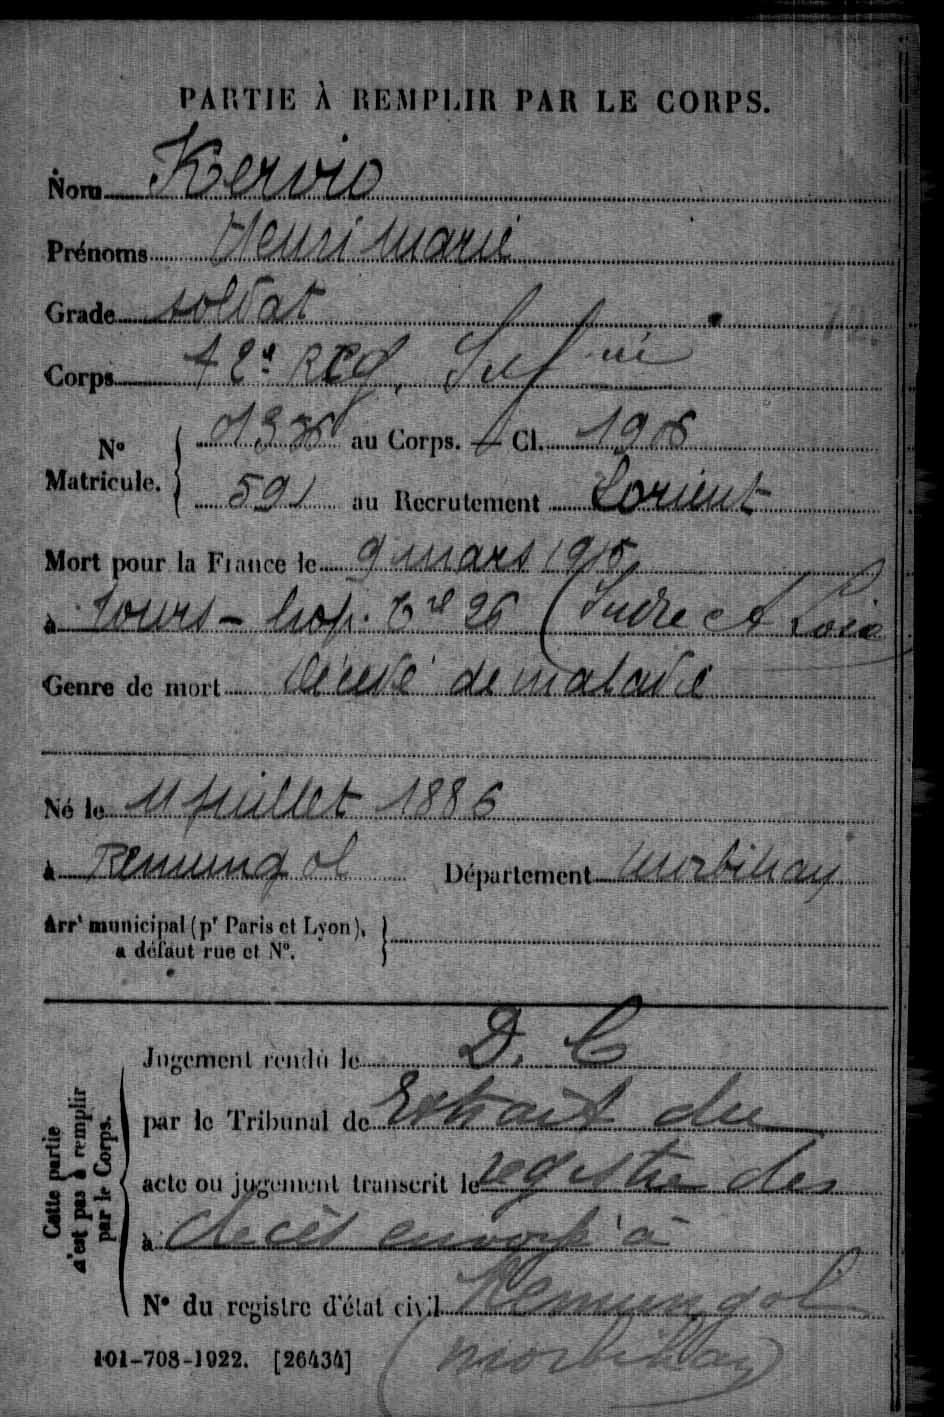 PARTIE À REMPLIR PAR LE CORPS.
Nom Kervio
Prénoms Henri Marie
Grade soldat
Corps 42e Reg. Inf
N° Matricule. { au Corps. — Cl. 1906
591 au Recrutement Lorient
Mort pour la France le 9 mars 1915
à Tours – hop. 26 (Indre et Loire
Genre de mort décédé de maladie
Né le 11 juillet 1886
à Remungol Département Morbihan
Arrt municipal (pr Paris et Lyon), à défaut rue et N°. }
Cette partie n'est pas à remplir par le Corps.
Jugement rendu le D. C
par le Tribunal de Extrait du
acte ou jugement transcrit le registre des
à décès envoyé à
N° du registre d'état civil Remungol
101-708-1922. [26434] (Morbihan)